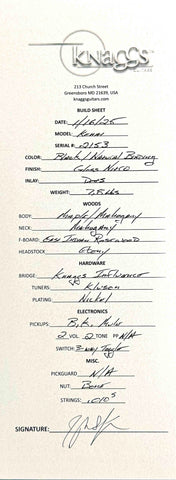 Knaggs
GUITARS
213 Church Street
Greensboro MD 21639, USA
knaggsguitars.com
BUILD SHEET
DATE: 1/16/25
MODEL: Kenai
SERIAL #: 2153
COLOR: Black / Natural Binding
FINISH: Gloss Nitro
INLAY: Dots
WEIGHT: 7.8 lbs
WOODS
BODY: Maple / Mahogany
NECK: Mahogany
F-BOARD: East Indian Rosewood
HEADSTOCK: Ebony
HARDWARE
BRIDGE: Knaggs Influence
TUNERS: Kluson
PLATING: Nickel
ELECTRONICS
PICKUPS: B.K. Mules
2 VOL 2 TONE PP N/A
SWITCH: 3-way Toggle
MISC.
PICKGUARD: N/A
NUT: Bone
STRINGS: .010s
SIGNATURE: